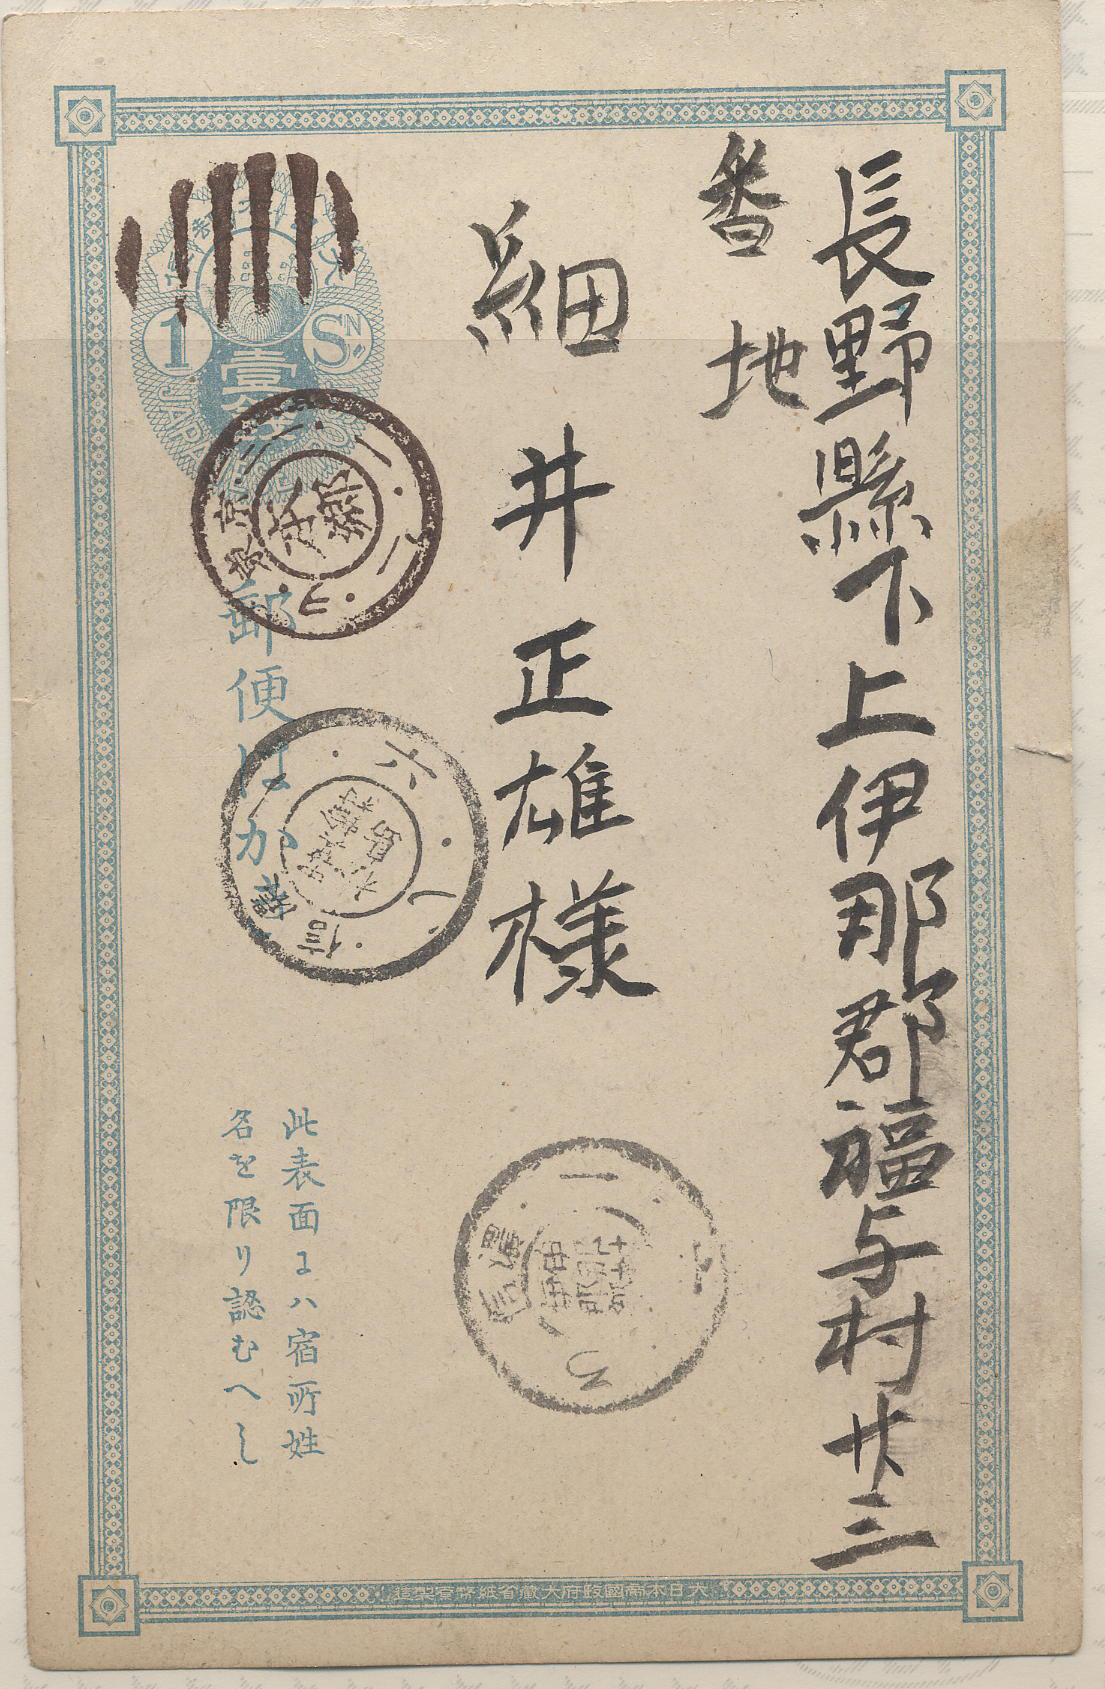 長野縣下上伊那郡福与村廿三
番地
細井正雄様
1 SN
壹錢
郵便はかき
東京
武蔵
信濃
此表面にハ宿所姓
名を限り認むへし
大日本帝國政府大藏省紙幣寮製造